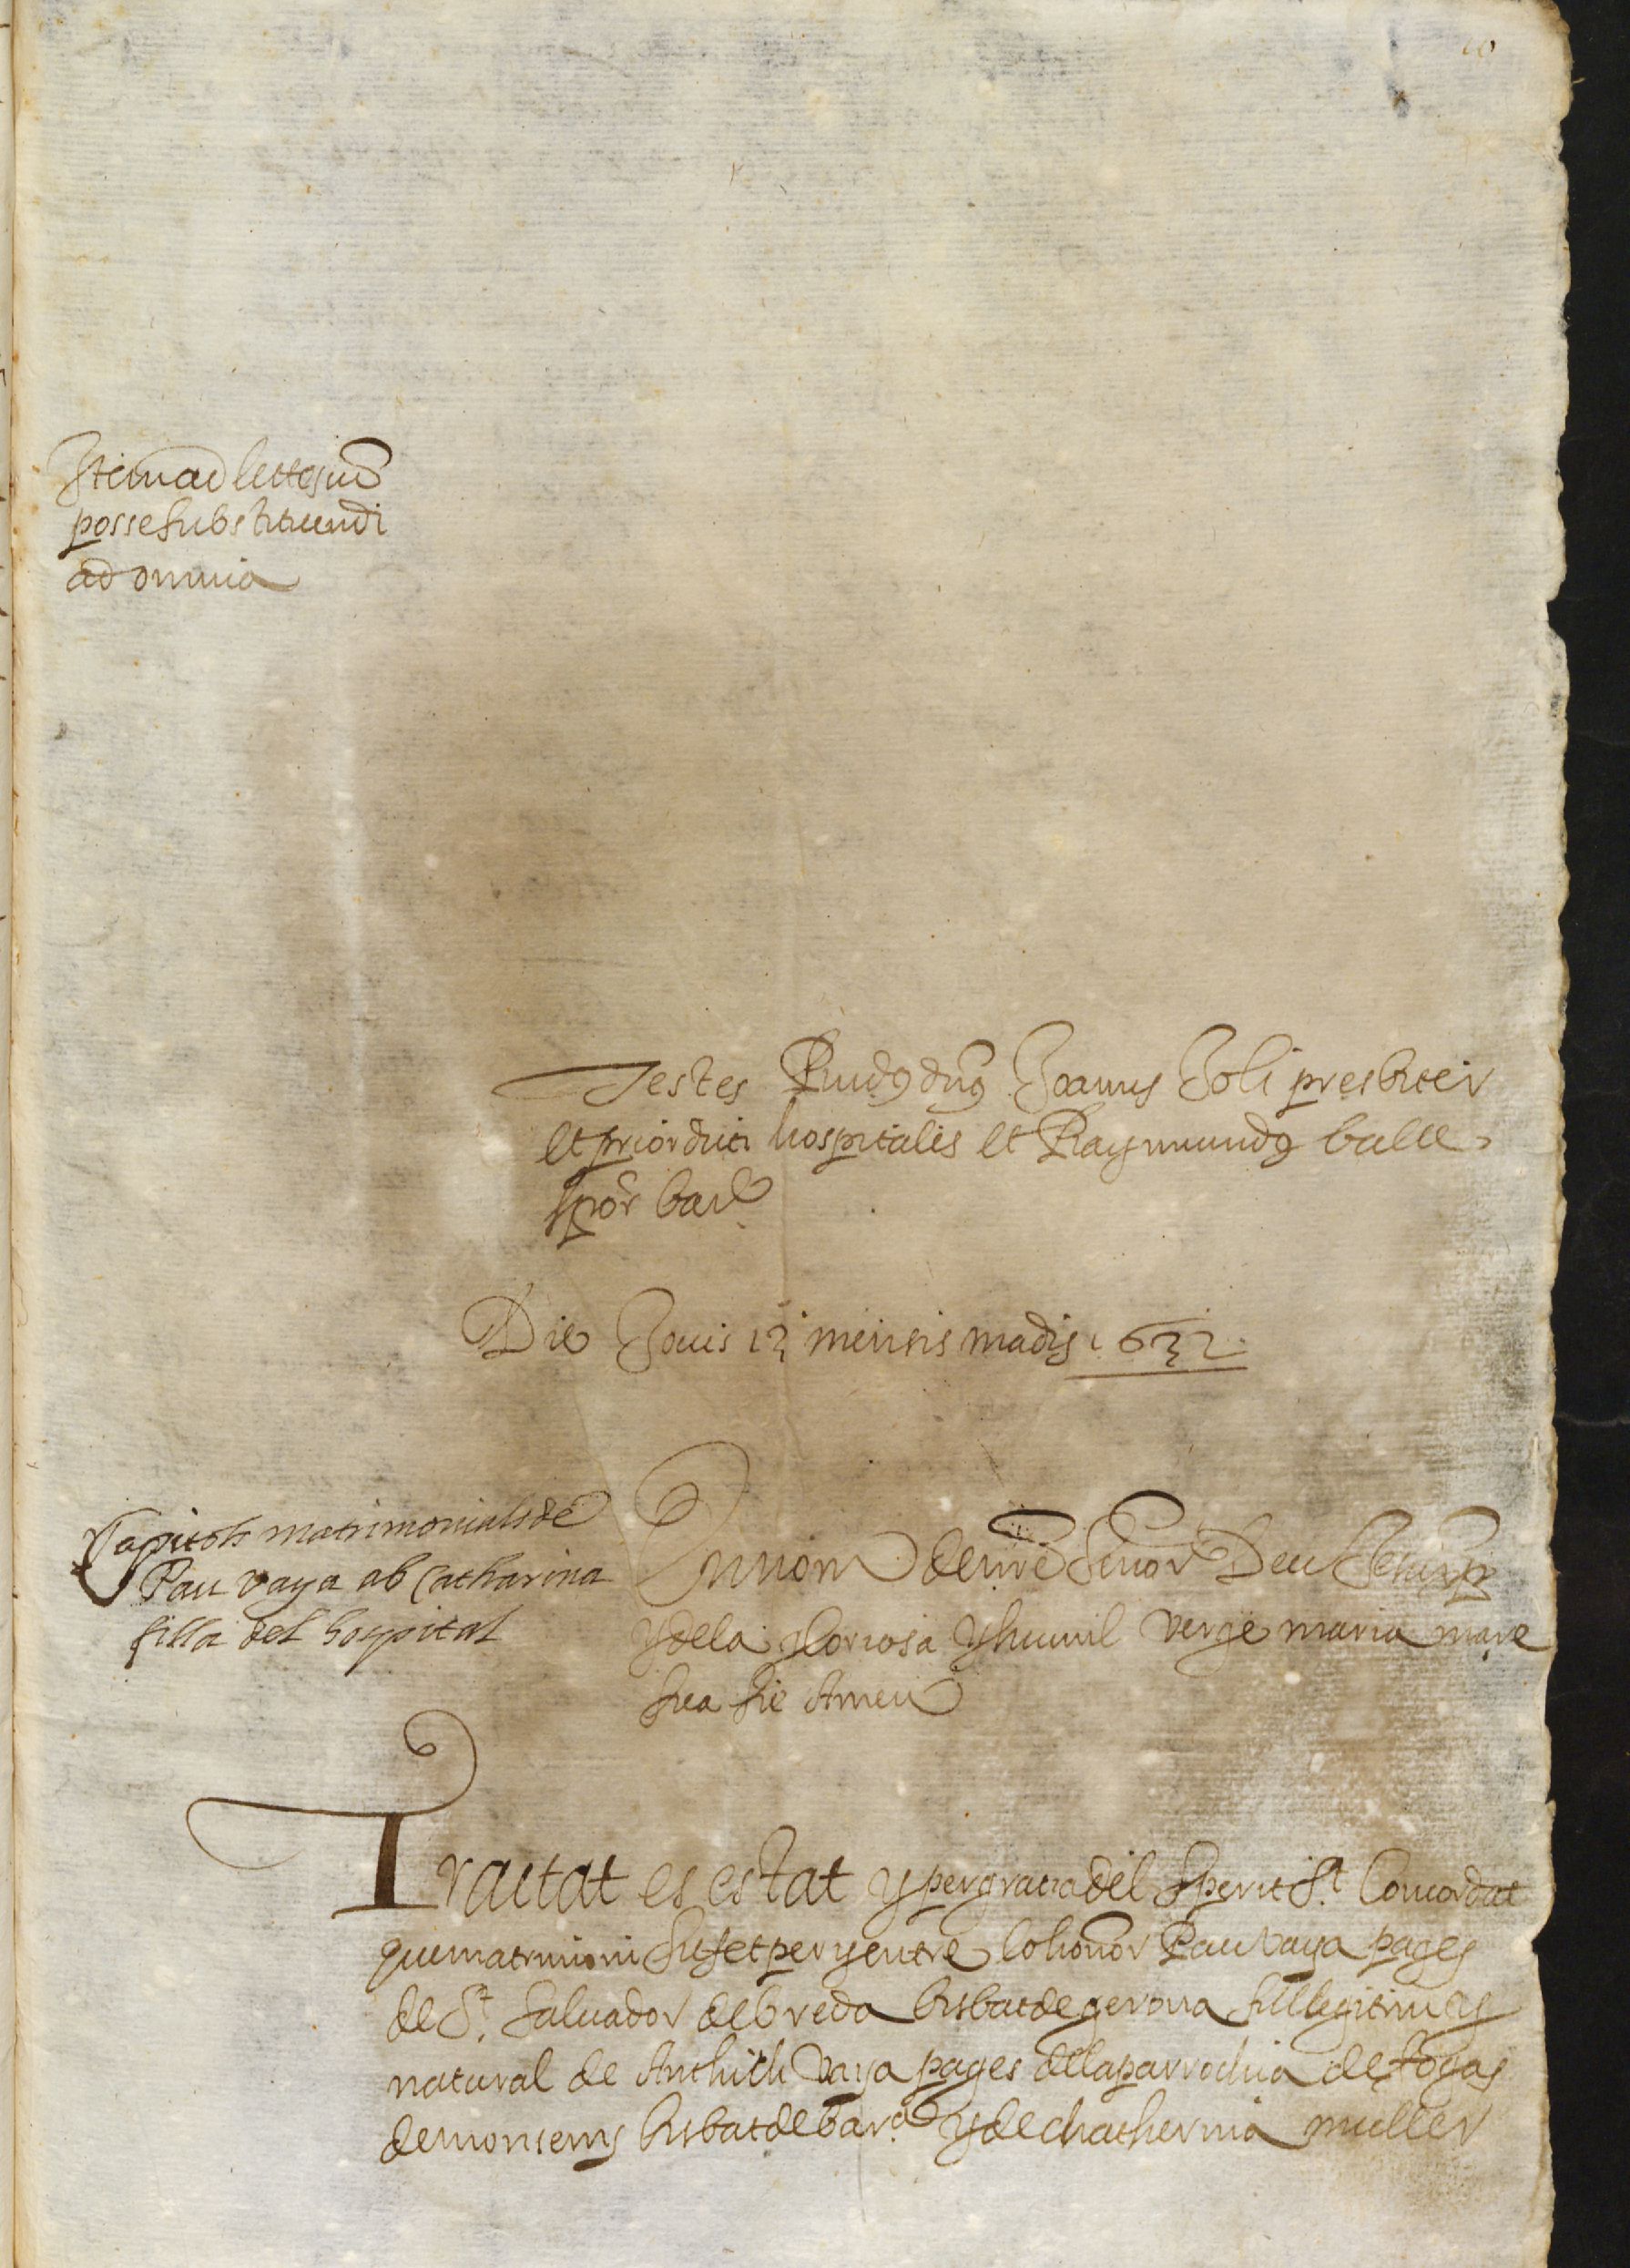 Item ad lites cum
posse substituendi
ad omnia
Testes Rndꝰ dnꝰ Joannes Soli presbiter
et prior dicti hospitalis et Raymundꝰ balle
scpõr bar.
Die Jouis 13 mensis madij 1632.
Capitols matrimonials de
Pau vaya ab Catharina
filla del hospital
En nom de nre Senor Deu Jesuxp
y dela gloriosa y humil verge maria mare
sua sie Amen
Tractat es estat y per gratia del Sperit St. Concordat
que matrimoni sie fet per y entre lo honor Pau vaya pages
de St. Saluador de breda bisbat de gerona fill legitim y
natural de Anthich vaya pages dela parrochia de fogas
de monseny bisbat de bar.ª y de chatherina muller